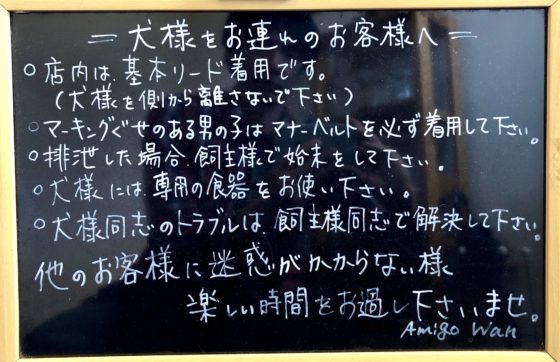 ＝犬様をお連れのお客様へ＝
○店内は、基本リード着用です。
（犬様を側から離さないで下さい）
○マーキングぐせのある男の子はマナーベルトを必ず着用して下さい。
○排泄した場合、飼主様で始末をして下さい。
○犬様には、専用の食器をお使い下さい。
○犬様同志のトラブルは、飼主様同志で解決して下さい。
他のお客様に迷惑がかからない様
楽しい時間をお過し下さいませ。
Amigo Wan